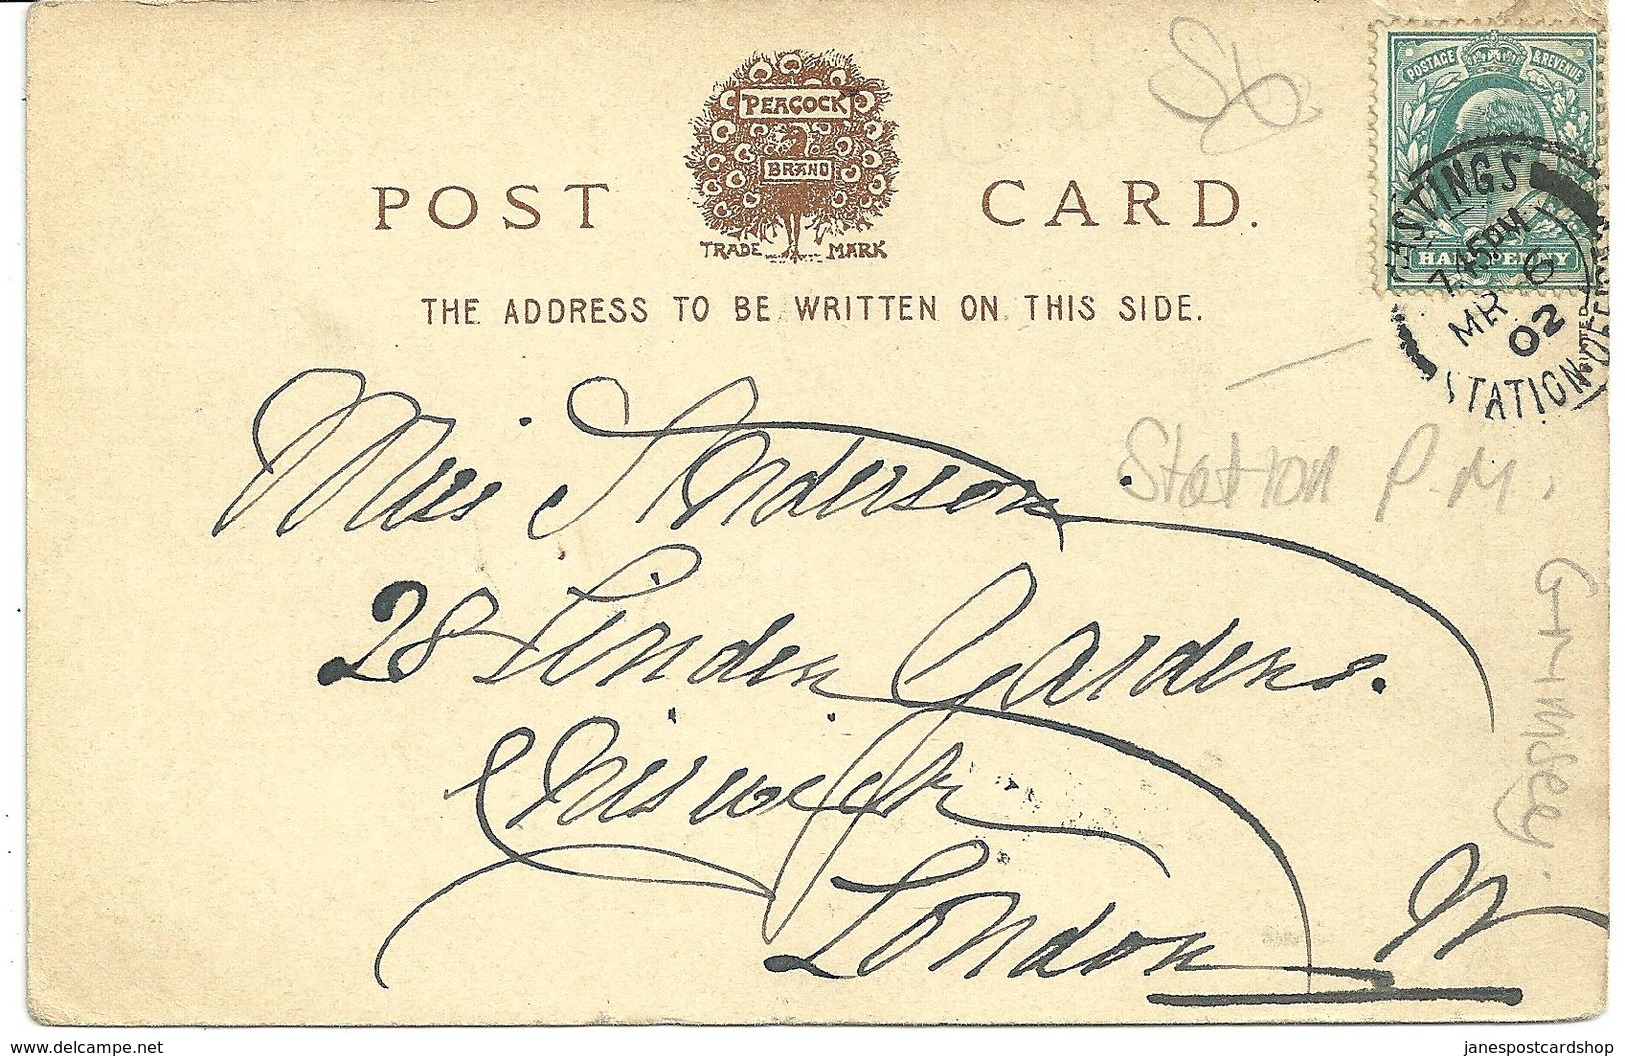 PEACOCK
BRAND
POST CARD.
TRADE MARK
THE ADDRESS TO BE WRITTEN ON THIS SIDE.
POSTAGE & REVENUE
HALFPENNY
HASTINGS
7.45PM
MR 6
02
STATION OFFICE
Miss Anderson
28 Linden Gardens.
Chiswick
London W
Station P.M.
Grimsey.
www.delcampe.net
janespostcardshop